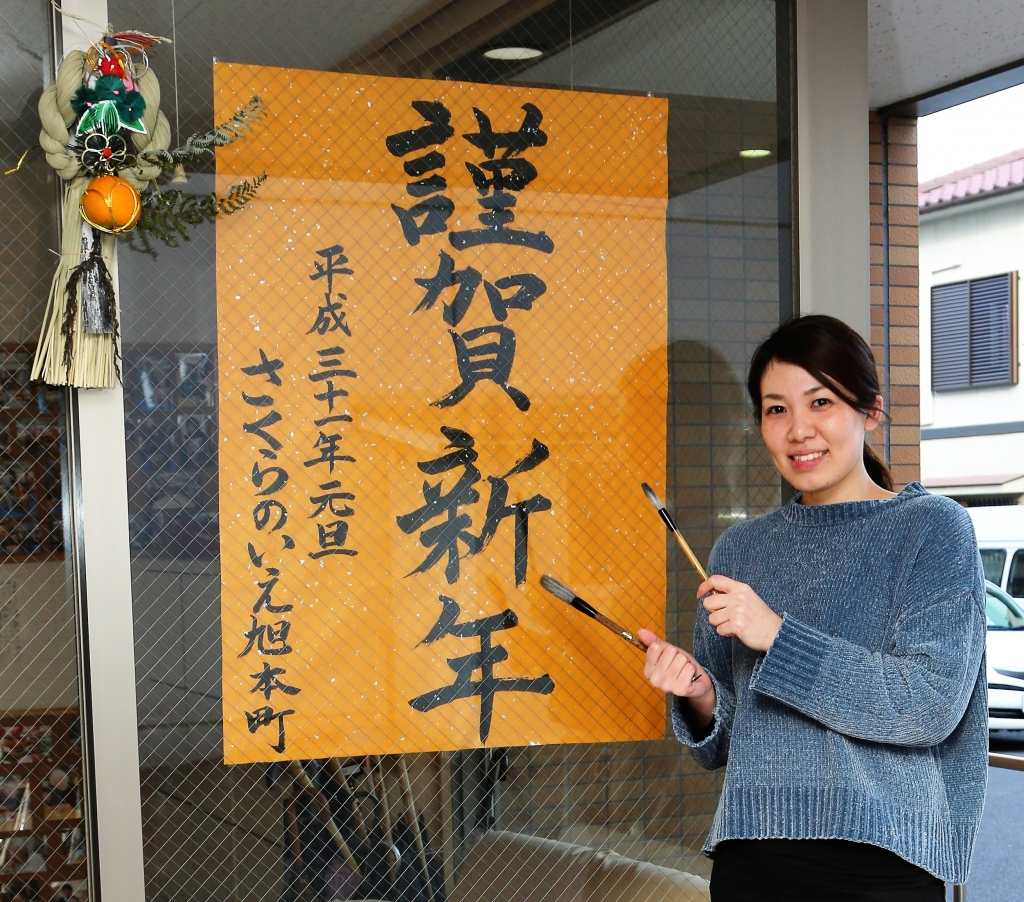 謹賀新年
平成三十一年元旦
さくらのいえ旭本町